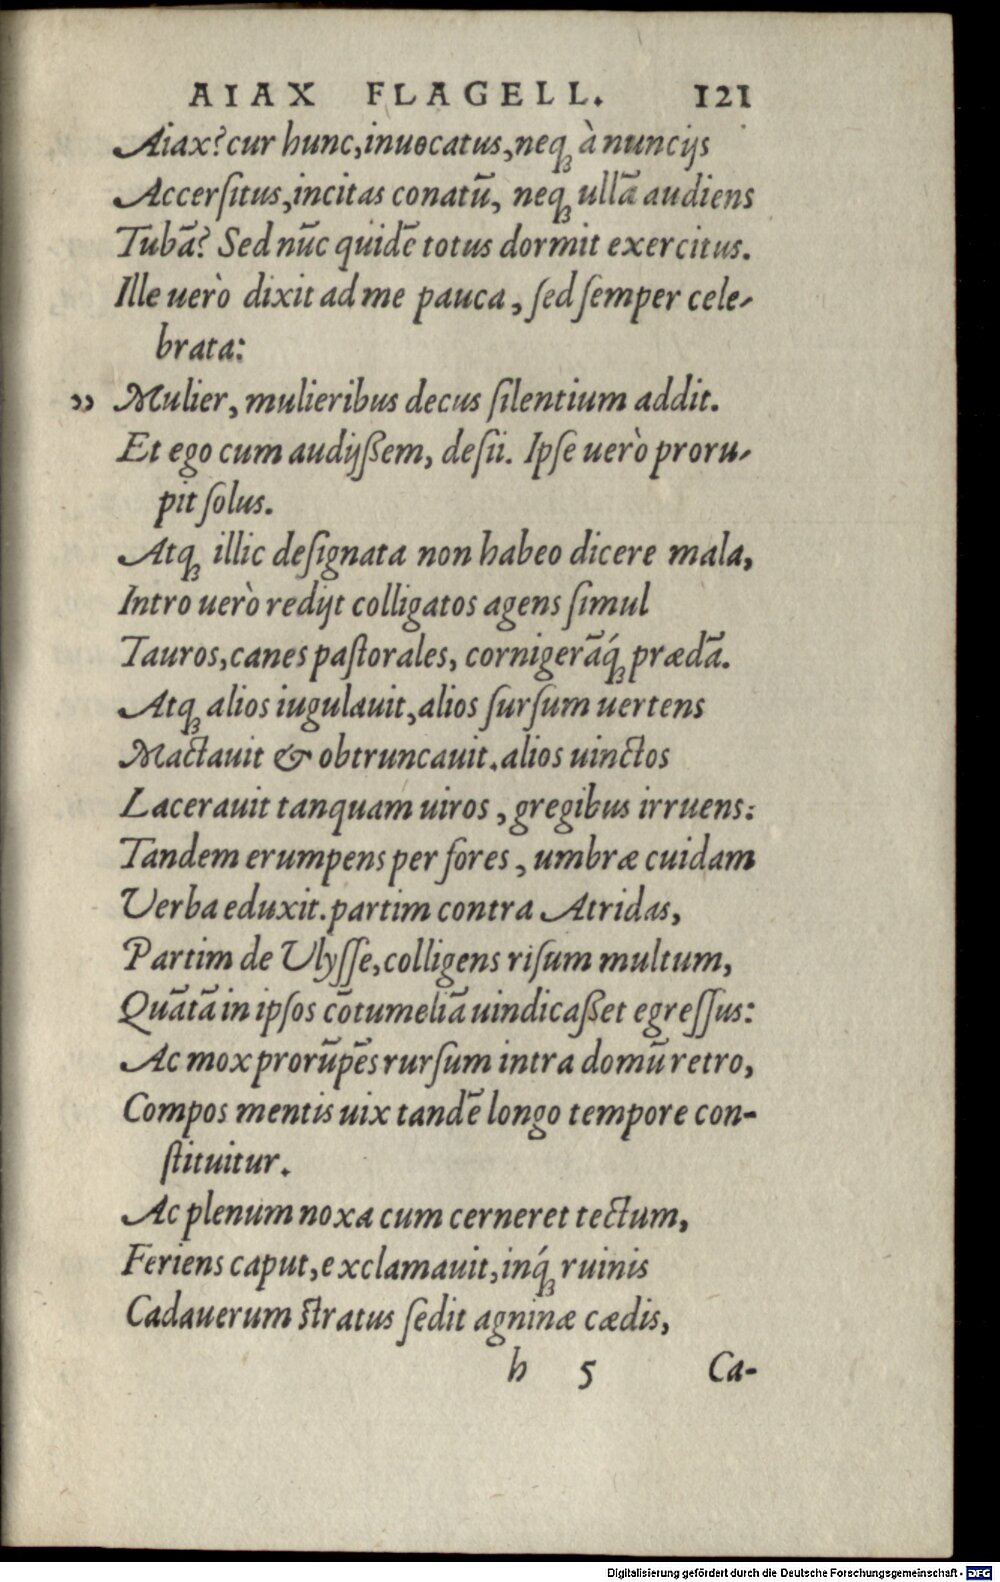 AIAX FLAGELL. 121
Aiax? cur hunc, inuocatus, neqꝫ à nuncijs
Accerſitus, incitas conatū, neqꝫ ullā audiens
Tubā? Sed nūc quidē totus dormit exercitus.
Ille uerò dixit ad me pauca, ſed ſemper cele-
brata:
›› Mulier, mulieribus decus ſilentium addit.
Et ego cum audijßem, deſii. Ipſe uerò proru-
pit ſolus.
Atqꝫ illic deſignata non habeo dicere mala,
Intro uerò redijt colligatos agens ſimul
Tauros, canes paſtorales, cornigerāq́ꝫ prædā.
Atqꝫ alios iugulauit, alios ſurſum uertens
Mactauit & obtruncauit. alios uinctos
Lacerauit tanquam uiros, gregibus irruens:
Tandem erumpens per fores, umbræ cuidam
Verba eduxit. partim contra Atridas,
Partim de Ulyſſe, colligens riſum multum,
Quātā in ipſos cōtumeliā uindicaßet egreſſus:
Ac mox prorūpēs rurſum intra domū retro,
Compos mentis uix tandē longo tempore con-
ſtituitur.
Ac plenum noxa cum cerneret tectum,
Feriens caput, exclamauit, inq́ꝫ ruinis
Cadauerum ſtratus ſedit agninæ cædis,
h 5 Ca-
Digitalisierung gefördert durch die Deutsche Forschungsgemeinschaft - DFG